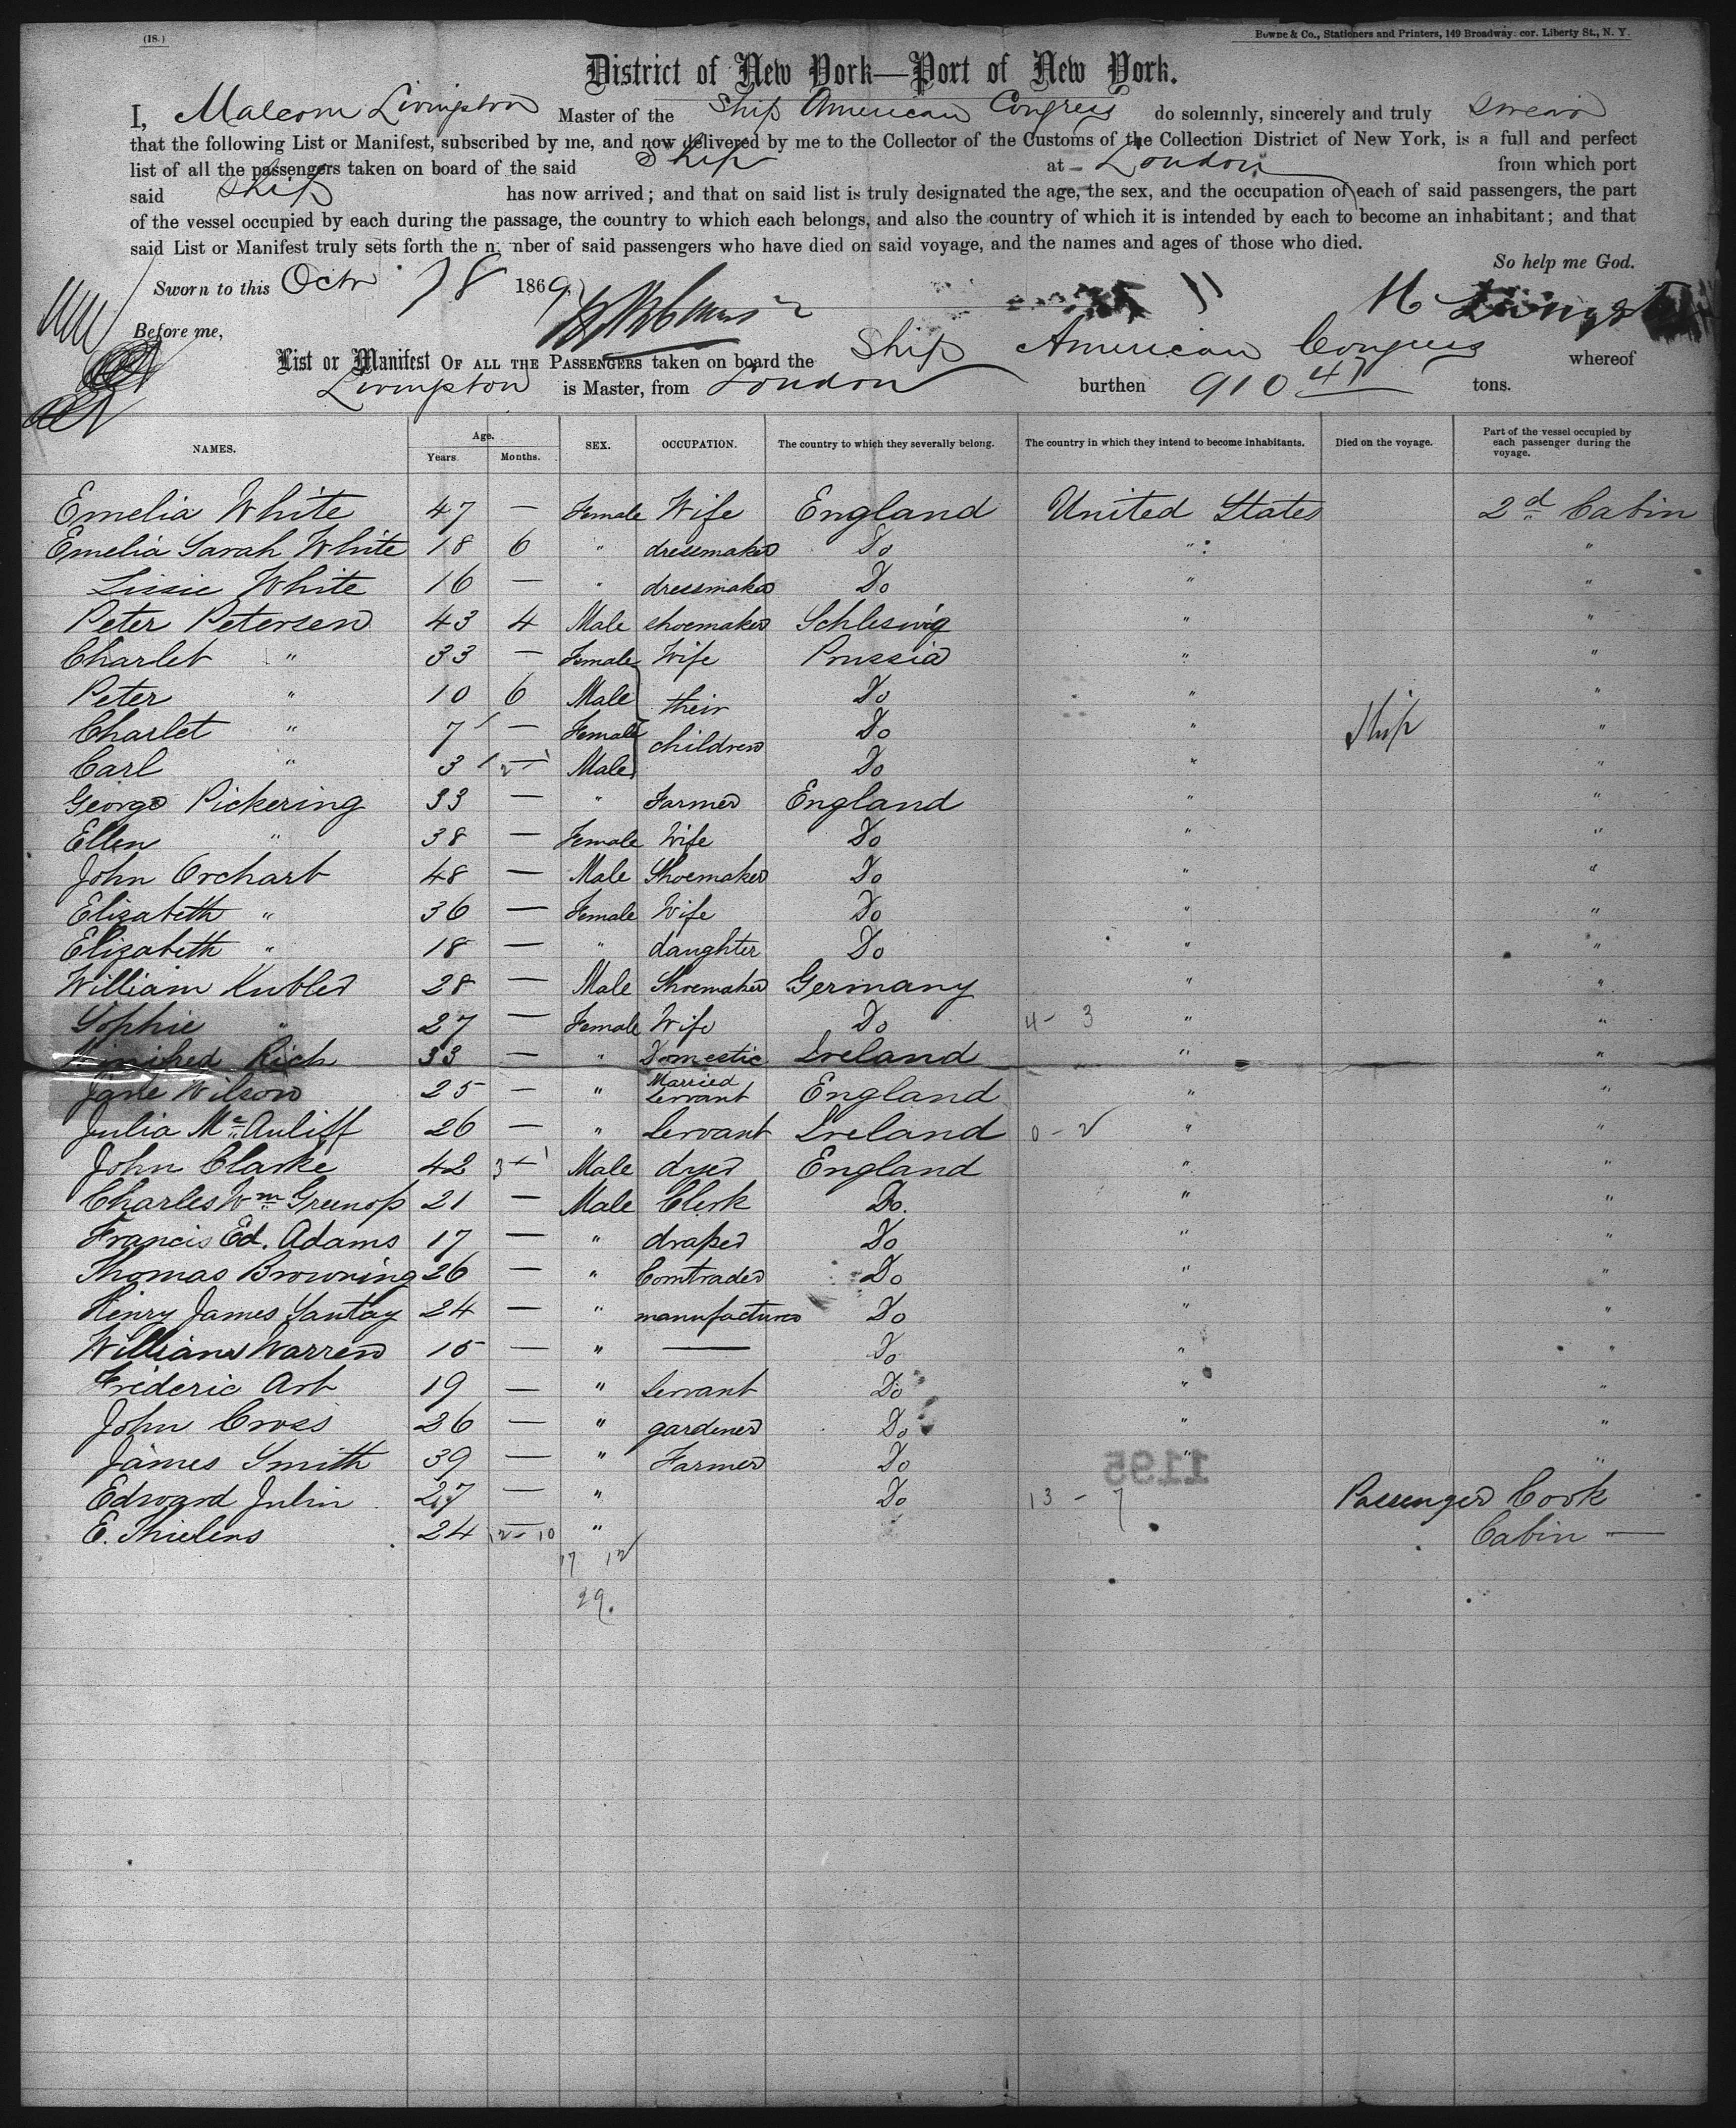 (18.)
Bowne & Co., Stationers and Printers, 149 Broadway. cor. Liberty St., N. Y.
District of New York—Port of New York.
I, Malcom Livingston Master of the Ship American Congress do solemnly, sincerely and truly swear
that the following List or Manifest, subscribed by me, and now delivered by me to the Collector of the Customs of the Collection District of New York, is a full and perfect
list of all the passengers taken on board of the said Ship at London from which port
said Ship has now arrived; and that on said list is truly designated the age, the sex, and the occupation of each of said passengers, the part
of the vessel occupied by each during the passage, the country to which each belongs, and also the country of which it is intended by each to become an inhabitant; and that
said List or Manifest truly sets forth the number of said passengers who have died on said voyage, and the names and ages of those who died.
So help me God.
Sworn to this Octr 18 1869
M Livingston
Before me,
List or Manifest OF ALL THE PASSENGERS taken on board the Ship American Congress whereof
Livingston is Master, from London burthen 910 47 tons.
NAMES. Age. Years. Months. SEX. OCCUPATION. The country to which they severally belong. The country in which they intend to become inhabitants. Died on the voyage. Part of the vessel occupied by each passenger during the voyage.
Emelia White 47 — Female Wife England United States 2d Cabin
Emelia Sarah White 18 6 " dressmaker Do " "
Lissie White 16 — " dressmaker Do " "
Peter Petersen 43 4 Male shoemaker Schleswig " "
Charlet " 33 — Female Wife Prussia " "
Peter " 10 6 Male their Do " "
Charlet " 7 — Female children Do " Ship "
Carl " 3 — Male Do " "
George Pickering 33 — " Farmer England " "
Ellen " 38 — Female Wife Do " "
John Orchart 48 — Male Shoemaker Do " "
Elizabeth " 36 — Female Wife Do " "
Elizabeth " 18 — " daughter Do " "
William Kubler 28 — Male Shoemaker Germany " "
Sophie " 27 — Female Wife Do 4 - 3 " "
Winifred Rich 33 — " Domestic Ireland " "
Jane Wilson 25 — " Married Servant England " "
Julia Mc Auliff 26 — " Servant Ireland 0 - 2 " "
John Clarke 42 3 — 1 Male dyer England " "
Charles Wm Greenop 21 — Male Clerk Do. " "
Francis Ed. Adams 17 — " draper Do " "
Thomas Browning 26 — " Corntrader Do " "
Henry James Santay 24 — " manufacturer Do " "
William Warren 15 — " — Do " "
Frederic Art 19 — " Servant Do " "
John Cross 26 — " gardener Do " "
James Smith 39 — " Farmer Do " "
1195
Edward Julin 27 — " Do 13 - 7 Passenger Cook
E. Thielens 24 12 - 10 " Cabin —
17 12
29.